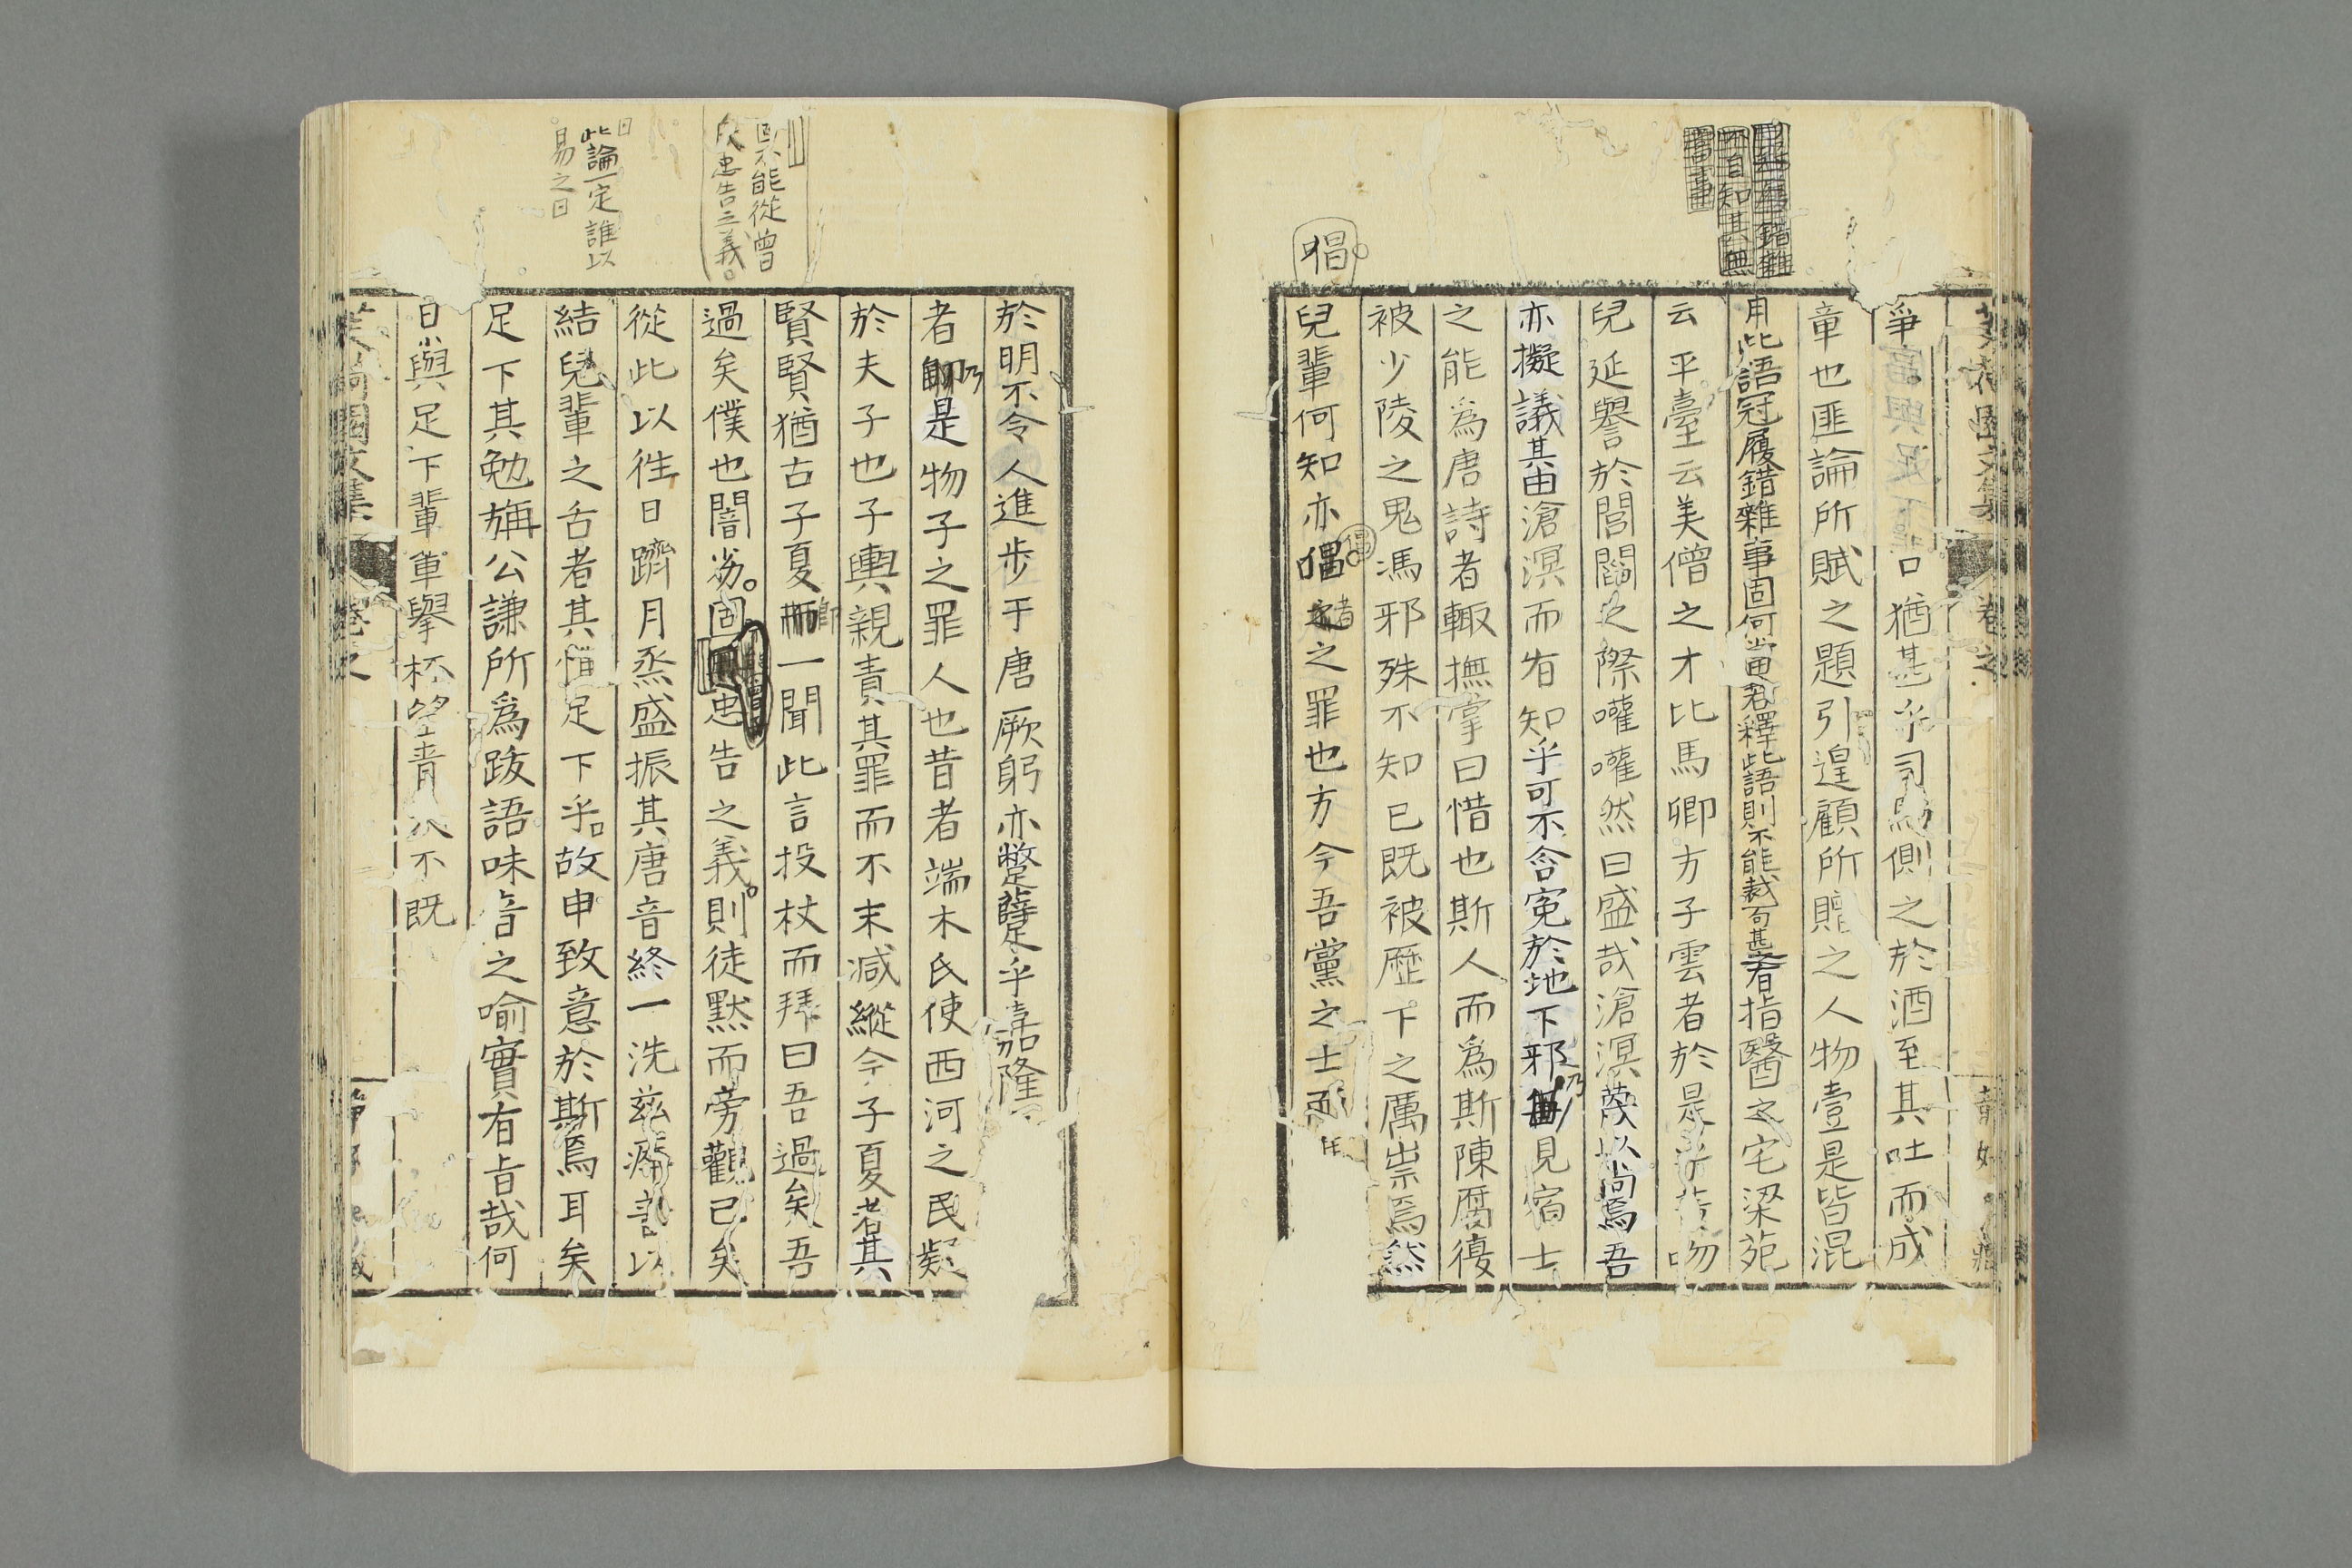 爭口猶甚乎司馬側之於酒至其吐而成
章也匪論所賦之題引遑顧所贈之人物壹是皆混
用此語冠履錯雜事固何當君釋此語則不能裁句甚者指醫之宅梁苑
云平臺云美僧之才比馬卿方子雲者於是
兒延譽於閭閻之際嚾嚾然曰盛哉滄溟蔑以尚焉吾
亦擬議其由滄溟而有知乎可不含冤於地下邪乃見宿士
之能為唐詩者輙撫掌曰惜也斯人而為斯陳腐復
被少陵之鬼馮邪殊不知已既被歷下之厲祟焉然
倡
兒輩何知亦倡者之罪也方今吾黨之士
於明不令人進步于唐厥躬亦蹩躠乎嘉隆
者乃是物子之罪人也昔者端木氏使西河之民疑
於夫子也子輿親責其罪而不末減縱令子夏若其
賢賢猶古子夏即一聞此言投杖而拜曰吾過矣吾
能從曾
忠告之義
過矣僕也闇劣固忠告之義則徒默而旁觀已矣
從此以往日躋月烝盛振其唐音終一洗茲以
此論一定誰以
易之
結兒輩之舌者其惟足下乎故申致意於斯焉耳矣
足下其勉旃公謙所為跋語味音之喻實有旨哉何
日與足下輩舉杯望青不既